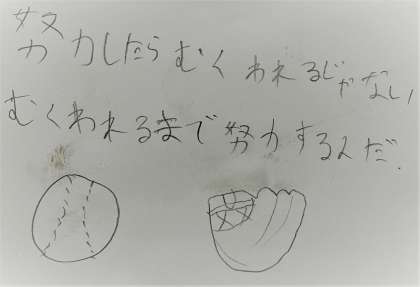 努力したらむくわれるじゃなし,
むくわれるまで努力するんだ.